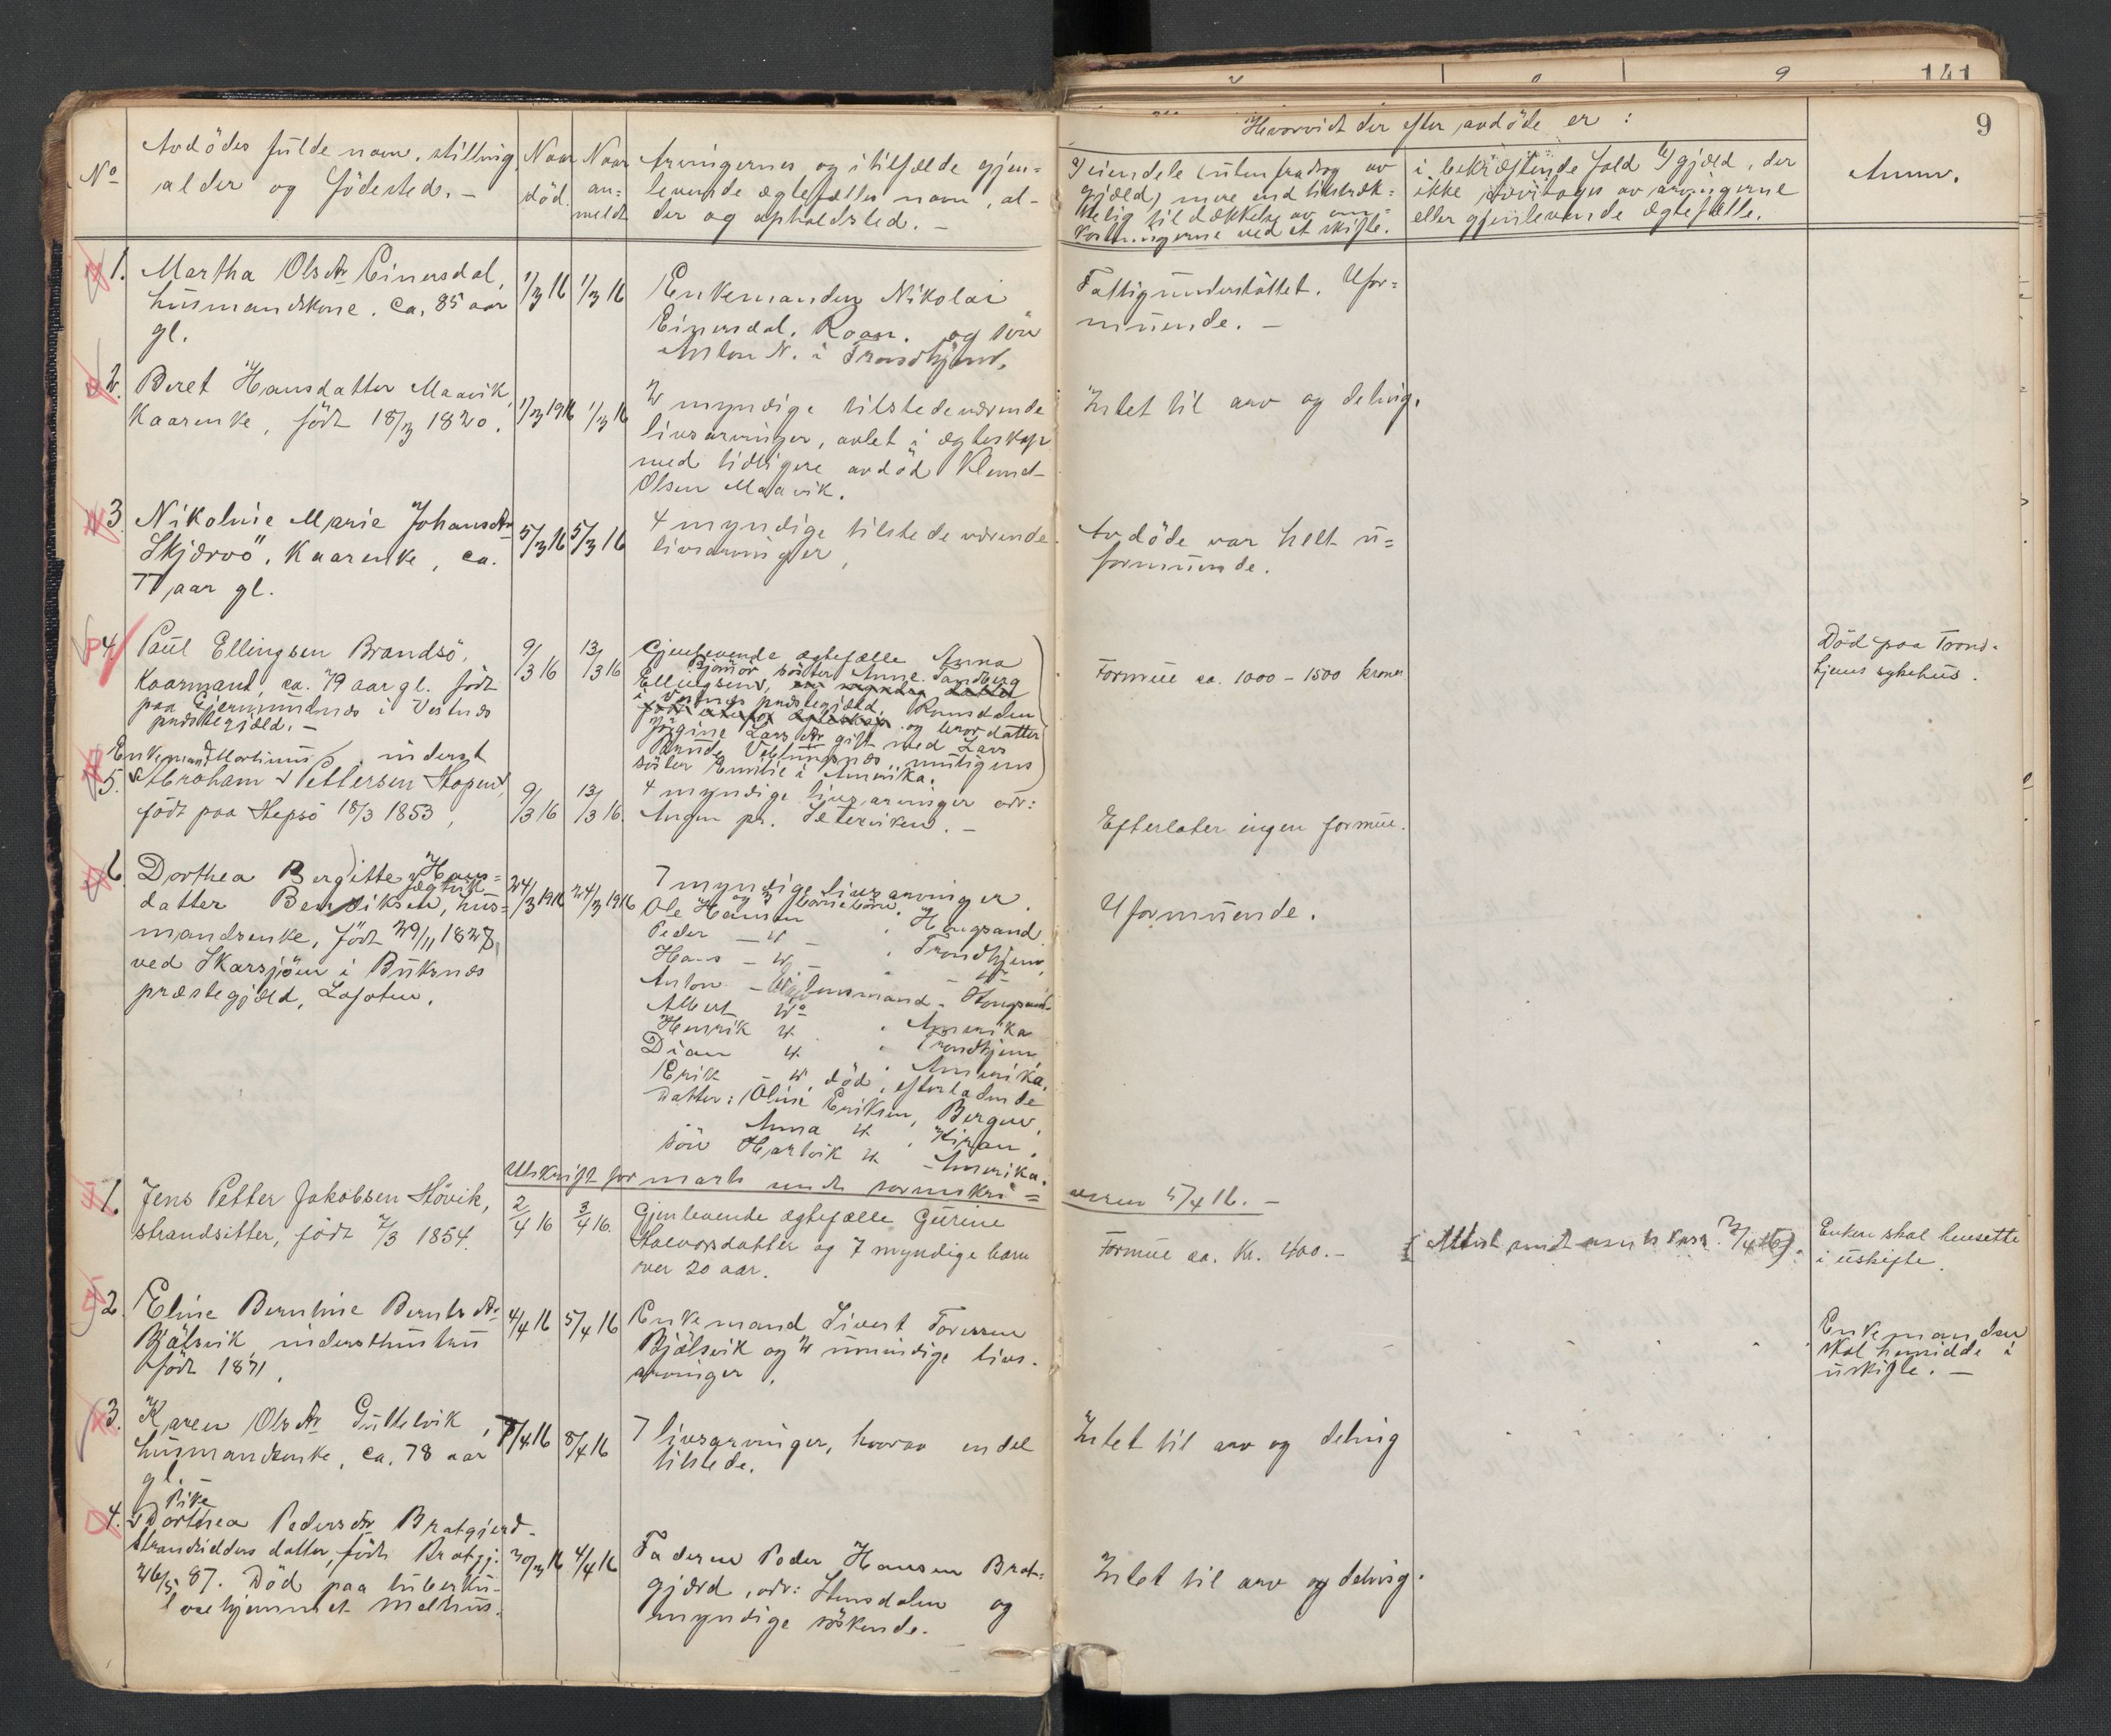 141
9
No
Avdödes fulde navn, stilling,
alder og födested. -
Naar
död.
Naar
an-
meldt
Arvingernes og i tilfælde gjen-
levende ægtefælles navn, al-
der og opholdsted. -
Hvorvidt der efter avdöde er :
a) eiendele (uten fradrag av
gjæld) mere end tilstræk-
kelig til dækkelse av om-
kostningerne ved et skifte.
i bekræftende fald b) gjæld, der
ikke overtages av arvingerne
eller gjenlevende ægtefælle.
Anm.
1. Martha Olsdtr Einersdal,
husmandskone. ca. 85 aar
gl.
1/3 16 1/3 16
Enkemanden Nikolai
Einersdal, Roan. og sön
Anton N. i Trondhjem.
Fattigunderstöttet. Ufor-
muende. -
2. Beret Hansdatter Maavik,
Kaarenke, född 18/3 1820.
1/3 1916 1/3 16
2 myndige tilstedeværende
livsarvinger, avlet i ægteskap
med tidligere avdöd Klemet
Olsen Maavik.
Intet til arv og deling.
3. Nikoline Marie Johansdtr
Skjærvö, Kaarenke, ca.
77 aar gl.
5/3 16 5/3 16
4 myndige tilstedeværende
livsarvinger,
Avdöde var helt u-
formuende.
4. Paul Ellingsen Brandsö,
Kaarmand, ca. 79 aar gl. född
paa Gjermundnæs i Vestnæs
præstegjæld. -
9/3 16 13/3 16
Gjenlevende ægtefælle Anna
Bjönör söster Anne Sandberg
Ellingsen,
i Vestnæs præstegjæld, Romsdalen
og brordatter
Jörgine Larsdtr gift med Lars
Veblungsnæs, muligens
söster Emilie i Amerika.
Formue ca. 1000 - 1500 kroner
Död paa Trond-
hjems sykehus.
Enkemand Martinus, inderst
5. Abraham Pettersen Hopen,
född paa Hepsö 18/3 1853,
9/3 16 13/3 16.
4 myndige livsarvinger adr:
Angen pr. Sæterviken. -
Efterlater ingen formue.
6. Dorthea Bergitte Hans-
datter Bendiksen, hus-
mandsenke, född 29/11 1827
ved Skarsjöen i Buksnæs
præstegjæld, Lofoten.
24/3 1916 24/3 1916
7 myndige livsarvinger.
og 3 barnebarn.
Ole Hansen, Hongsand
Peder - " - , Trondhjem,
Hans - " - " - " -
Anton - " lensmand - Hongsand.
Albert "
Henrik " , Amerika
Dian " , Trondhjem,
Amerika.
Erik - " , död, efterladende
datter: Oline Eriksen, Bergen,
Anna " , Kiran,
sön Hartvik " - Amerika.
Utskrift for marts sendt sorenskri-
veren 5/4 16. -
1. Jens Petter Jakobsen Hövik,
strandsitter, född 7/3 1854.
2/4 16 3/4 16.
Gjenlevende ægtefælle Gurine
Halvorsdatter og 7 myndige barn
over 20 aar.
Formue ca. Kr. 400. -
Enken skal hensitte
i uskifte.
2. Eline Berntine Berntsdtr
Bjölsvik, indersthustru
född 1871,
4/4 16 5/4 16
Enkemand Sivert Toressen
Bjölsvik og 2 umindige livs-
arvinger.
Enkemanden
skal hensidde i
uskifte. -
3. Karen Olsdtr Gultelvik,
husmandsenke, ca. 78 aar
gl. -
7/4 16 8/4 16
7 livsarvinger, hvorav endel
tilstede.
Intet til arv og deling
Pike
4. Dorthea Pedersdtr Bratgjerd-
strandsidders datter, född Bratgj.
26/5 87. Död paa tuberku-
losehjemmet Melhus.
30/3 16 4/4 16
Faderen Peder Hansen Brat-
gjærd, adr: Stensdalen og
myndige söskende.
Intet til arv og deling.